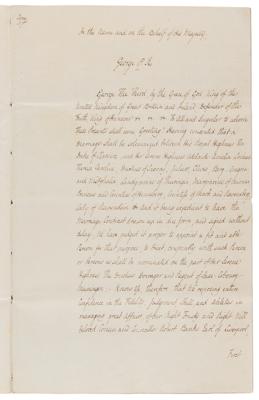 Copy
In the Name and on the Behalf of His Majesty.
George P. R.
George the Third by the Grace of God King of the
United Kingdom of Great Britain and Ireland Defender of the
Faith, King of Hanover &c &c &c To all and Singular to whom
these Presents shall come Greeting! Having consented that a
Marriage shall be solemnized between His Royal Highness the
Duke of Clarence, and Her Serene Highness Adelaide Amelia Louisa
Theresa Caroline, Duchess of Saxony, Juliers, Cleves, Berg, Engern
and Westphalia, Landgravine of Thuringia, Margravine of Misnia
Princess and Countess of Henneberg, Countess of Mark and Ravensberg,
Lady of Ravenstein &c And of being requisite to have the
Marriage Contract drawn up in due form, and signed without
delay; We have judged it proper to appoint a fit and able
Person for that purpose, to treat conjointly with such Person
or Persons as shall be nominated on the part of Her Serene
Highness the Duchess Dowager and Regent of Saxe-Cobourg-
Meiningen: Know Ye, therefore that We reposing entire
Confidence in the Fidelity, Judgment, Skill and Abilities in
managing great Affairs of Our Right Trusty and Right Well
beloved Cousin and Councillor Robert Banks Earl of Liverpool
First